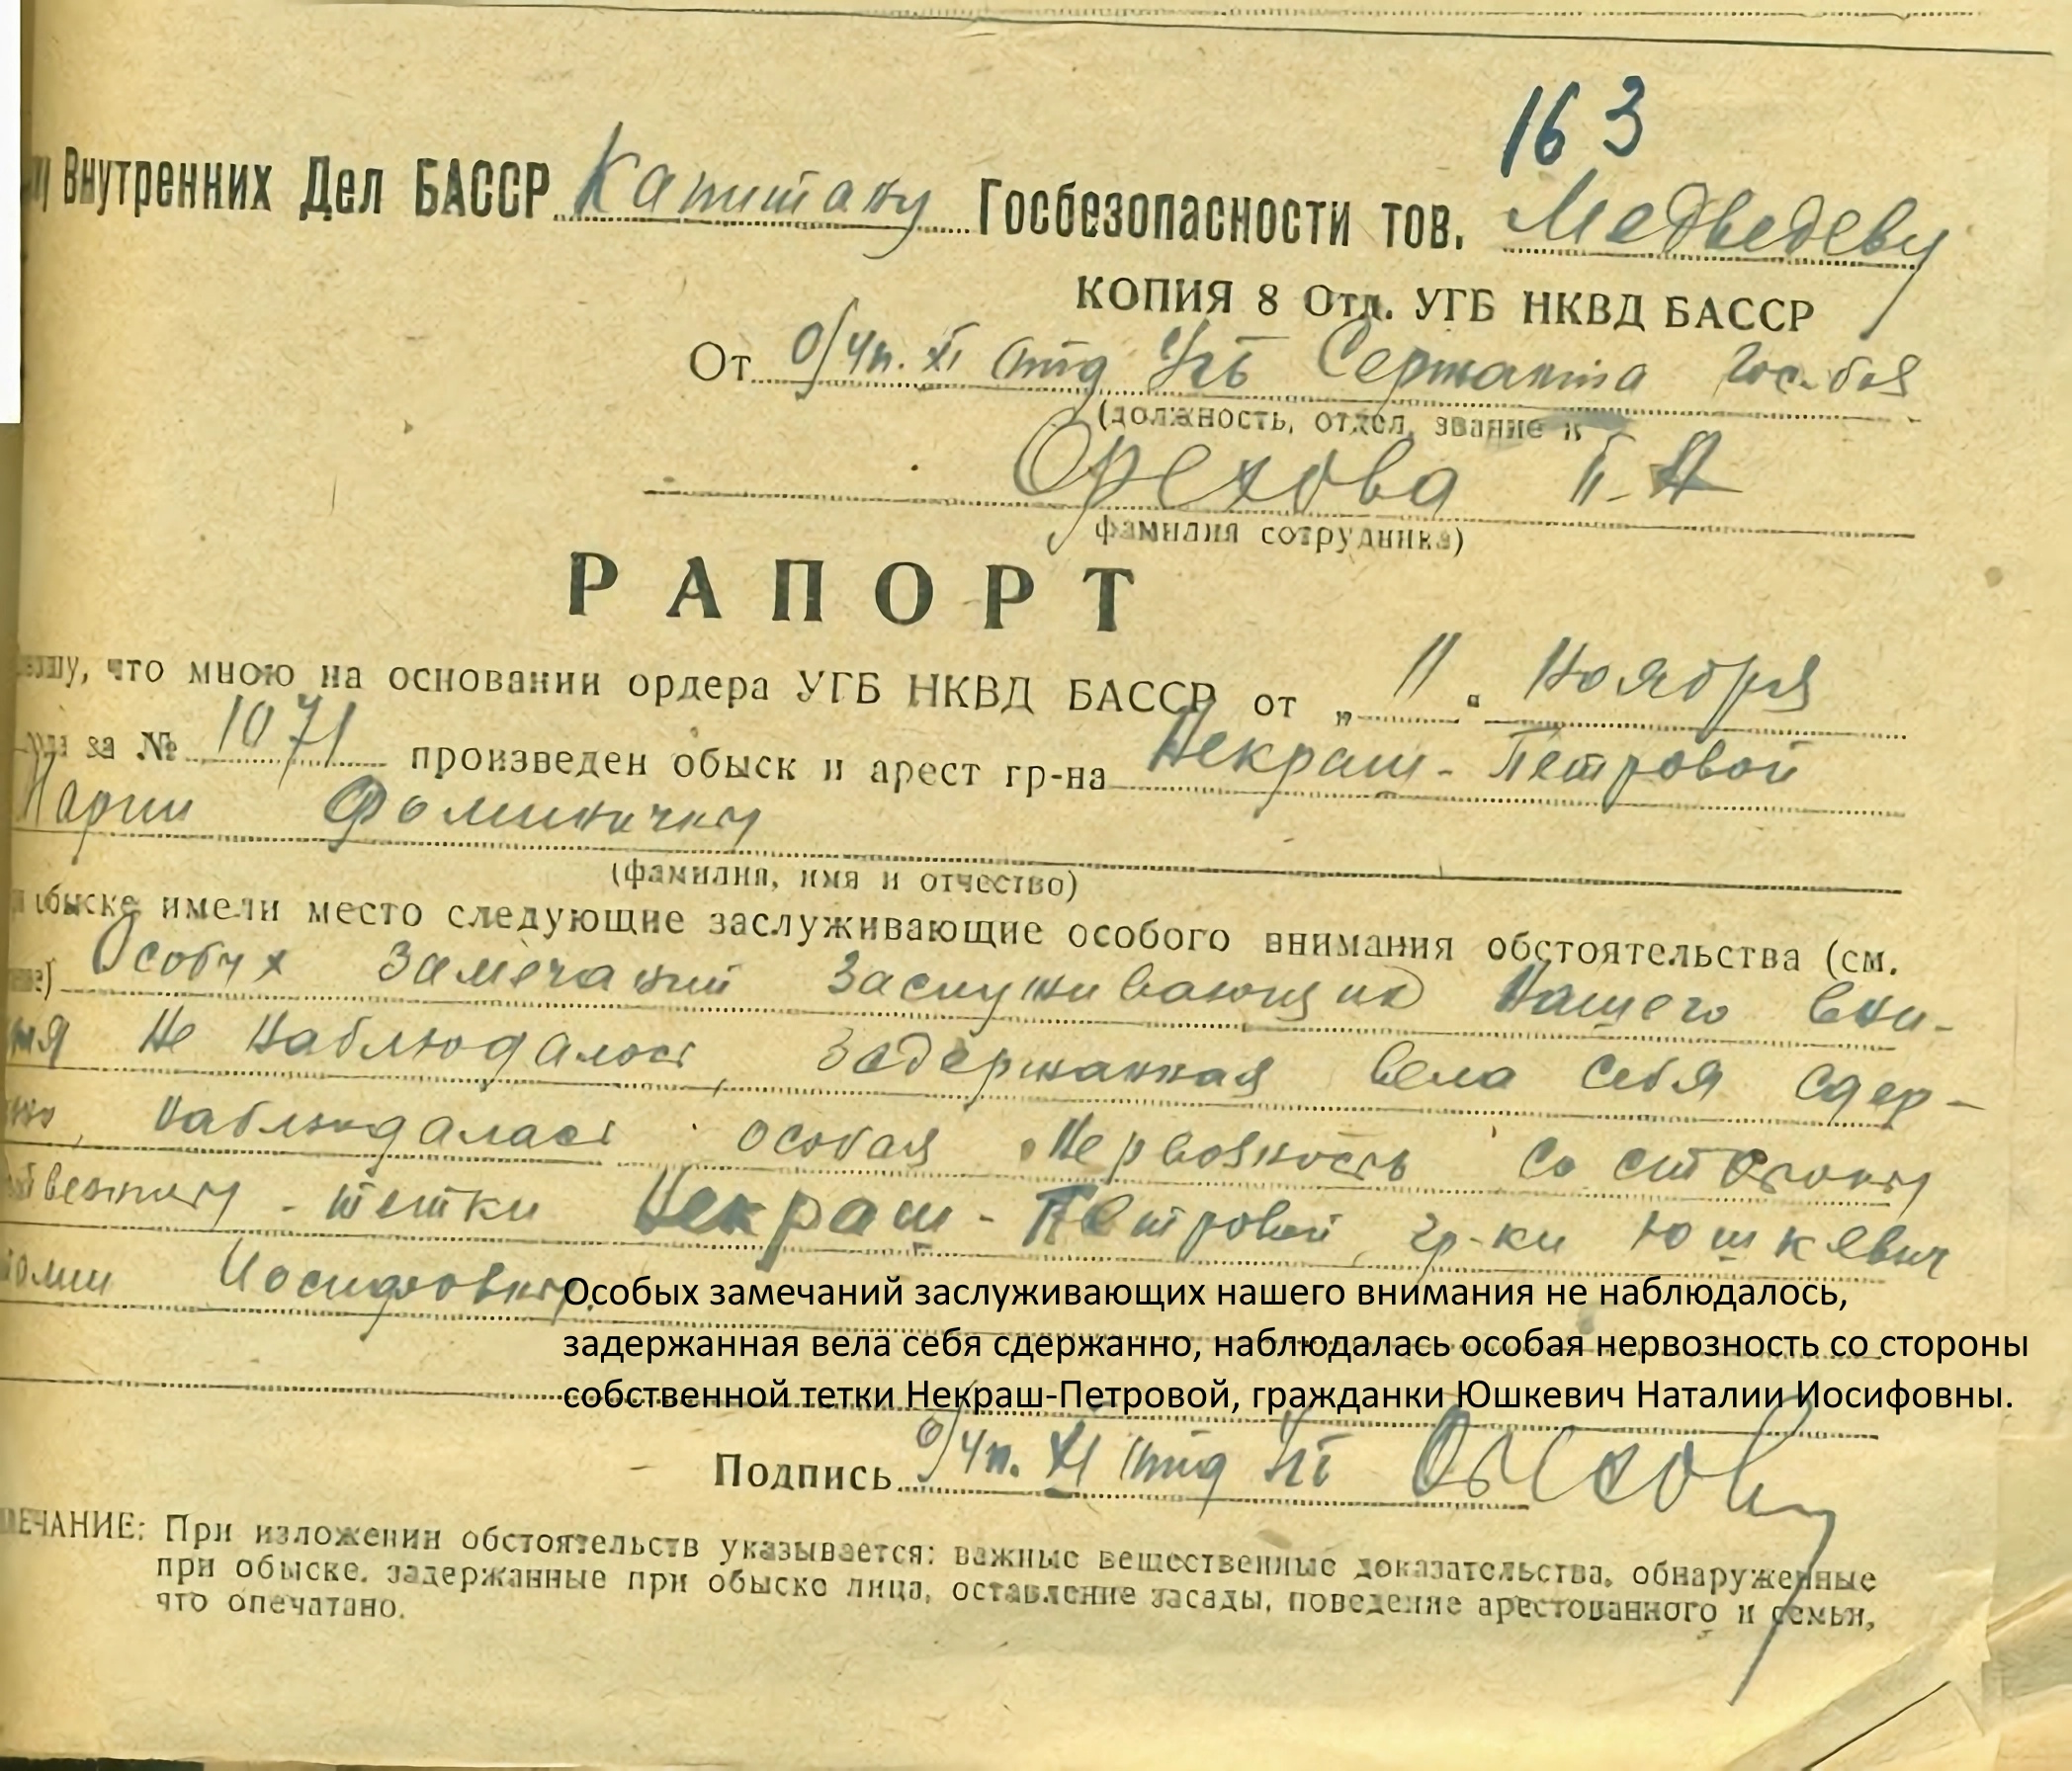 163
Внутренних Дел БАССР Капитану Госбезопасности тов. Медведеву
КОПИЯ 8 Отд. УГБ НКВД БАССР
От О/Уп. XI Отд УГБ Сержанта Гос. без
(должность, отдел, звание и
Орехова П. А
фамилия сотрудника)
РАПОРТ
что мною на основании ордера УГБ НКВД БАССР от „11" Ноября
за № 1071 произведен обыск и арест гр-на Некраш-Петровой
Марии Фоминичны
(фамилия, имя и отчество)
обыске имели место следующие заслуживающие особого внимания обстоятельства (см.
Особых Замечаний Заслуживающих Нашего вни-
ния Не Наблюдалось, Задержанная вела себя сдер-
жано, Наблюдалась особая Нервозность со стороны
тетки Некраш-Петровой, гр-ки Юшкевич
Иосифовны.
Особых замечаний заслуживающих нашего внимания не наблюдалось,
задержанная вела себя сдержанно, наблюдалась особая нервозность со стороны
собственной тетки Некраш-Петровой, гражданки Юшкевич Наталии Иосифовны.
Подпись О/Уп. XI Отд УГБ
ЕЧАНИЕ: При изложении обстоятельств указывается: важные вещественные доказательства, обнаруженные
при обыске, задержанные при обыске лица, оставление засады, поведение арестованного и семьи,
что опечатано.